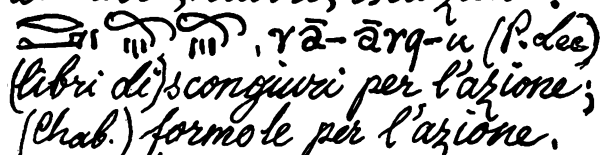 , rā-ārq-u (P. Lee)
(libri di) scongiuri per l'azione;
(Chab.) formole per l'azione.